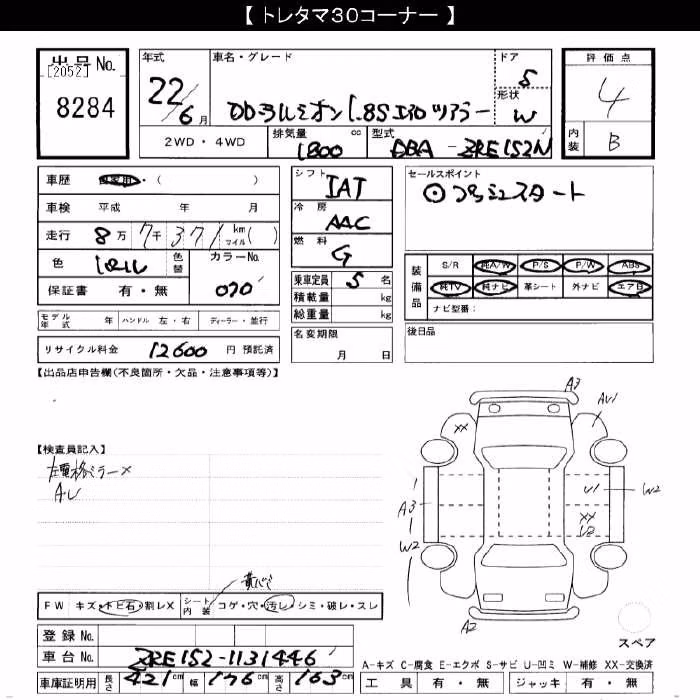 【 トレタマ30コーナー 】
出号 No.
[2052]
8284
年式
22/6月
車名・グレード
カローラルミオン 1.8S エアロツアラー
ドア
5
形状
W
評価点
4
内装
B
2WD・4WD
排気量
1800 cc
型式
DBA-ZRE152N
車歴 自家用・( )
車検 平成 年 月
走行 8万7千371 km マイル( )
色
色替
カラーNo.
070
保証書 有・無
シフト
IAT
冷房
AAC
燃料
G
乗車定員 5名
積載量 kg
総重量 kg
セールスポイント
⊙プッシュスタート
装備品
S/R 純A/W P/S P/W ABS
純TV 純ナビ 革シート 外ナビ エアB
ナビ型番:
モデル年式 年 ハンドル 左・右 ディーラー・並行
名変期限
月 日
後日品
リサイクル料金 12600 円 預託済
【出品店申告欄(不良箇所・欠品・注意事項等)】
【検査員記入】
左電格ミラー×
A・U
A3
AU1
XX
A3
U1
W2
XX
W2
W2
A2
FW キズ・トビ石・割レX
シート内装 コゲ・穴・汚レ・シミ・破レ・スレ
登録 No.
車台 No. ZRE152-1131446
車庫証明用 長さ 421cm 幅 176cm 高さ 163cm
スペア
A-キズ C-腐食 E-エクボ S-サビ U-凹ミ W-補修 XX-交換済
工具 有・無 ジャッキ 有・無